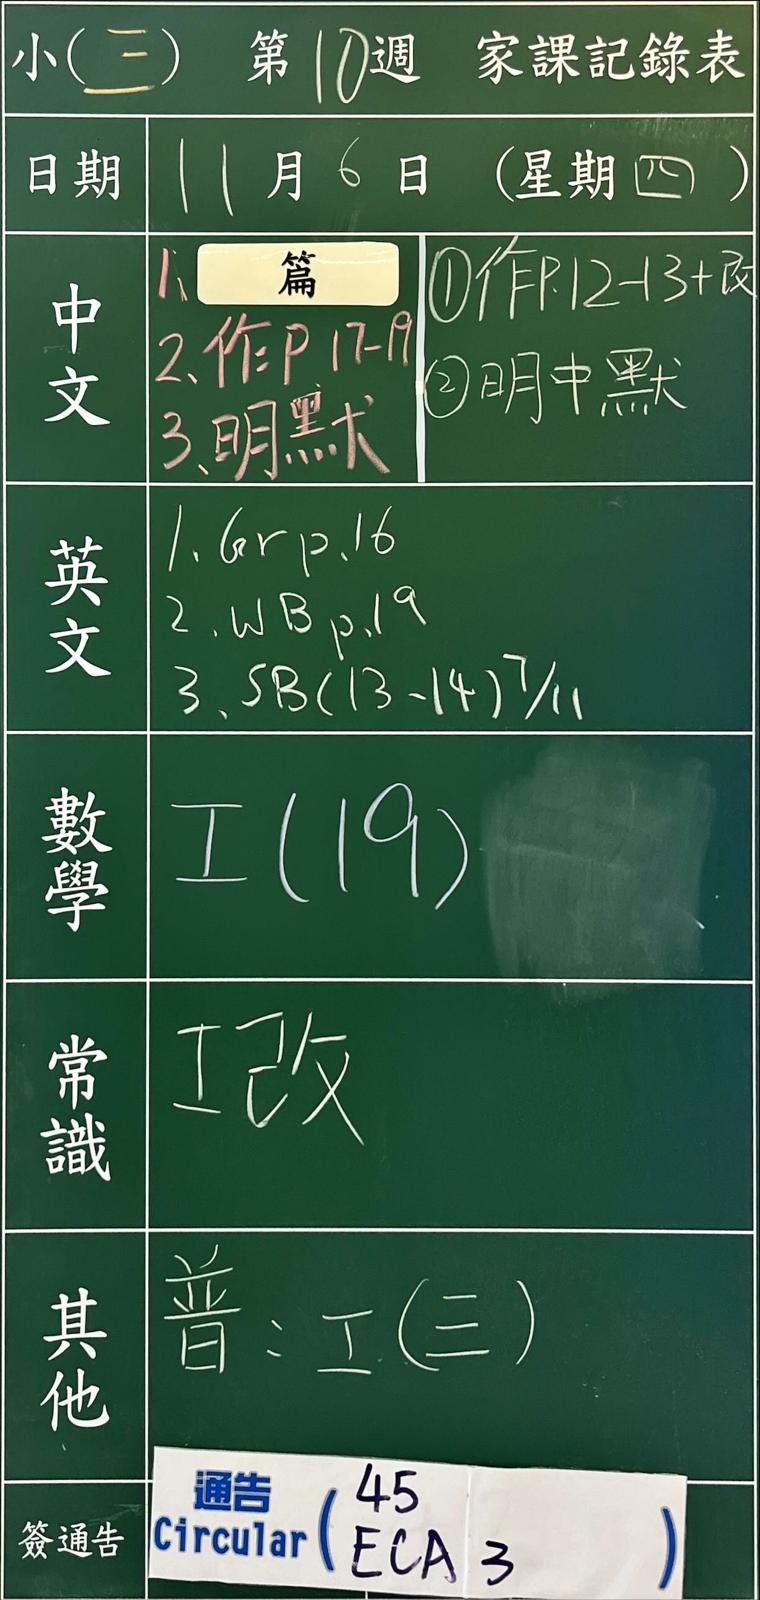 小(三) 第10週 家課記錄表
日期 11月6日 (星期四)
中文
1. 篇
2. 作P17-19
3. 明默
①作P.12-13+改
②明中默
英文
1. Gr p.16
2. WB p.19
3. SB(13-14) 7/11
數學
工(19)
常識
工改
其他
普:工(三)
簽通告
通告
Circular
(45
ECA 3)